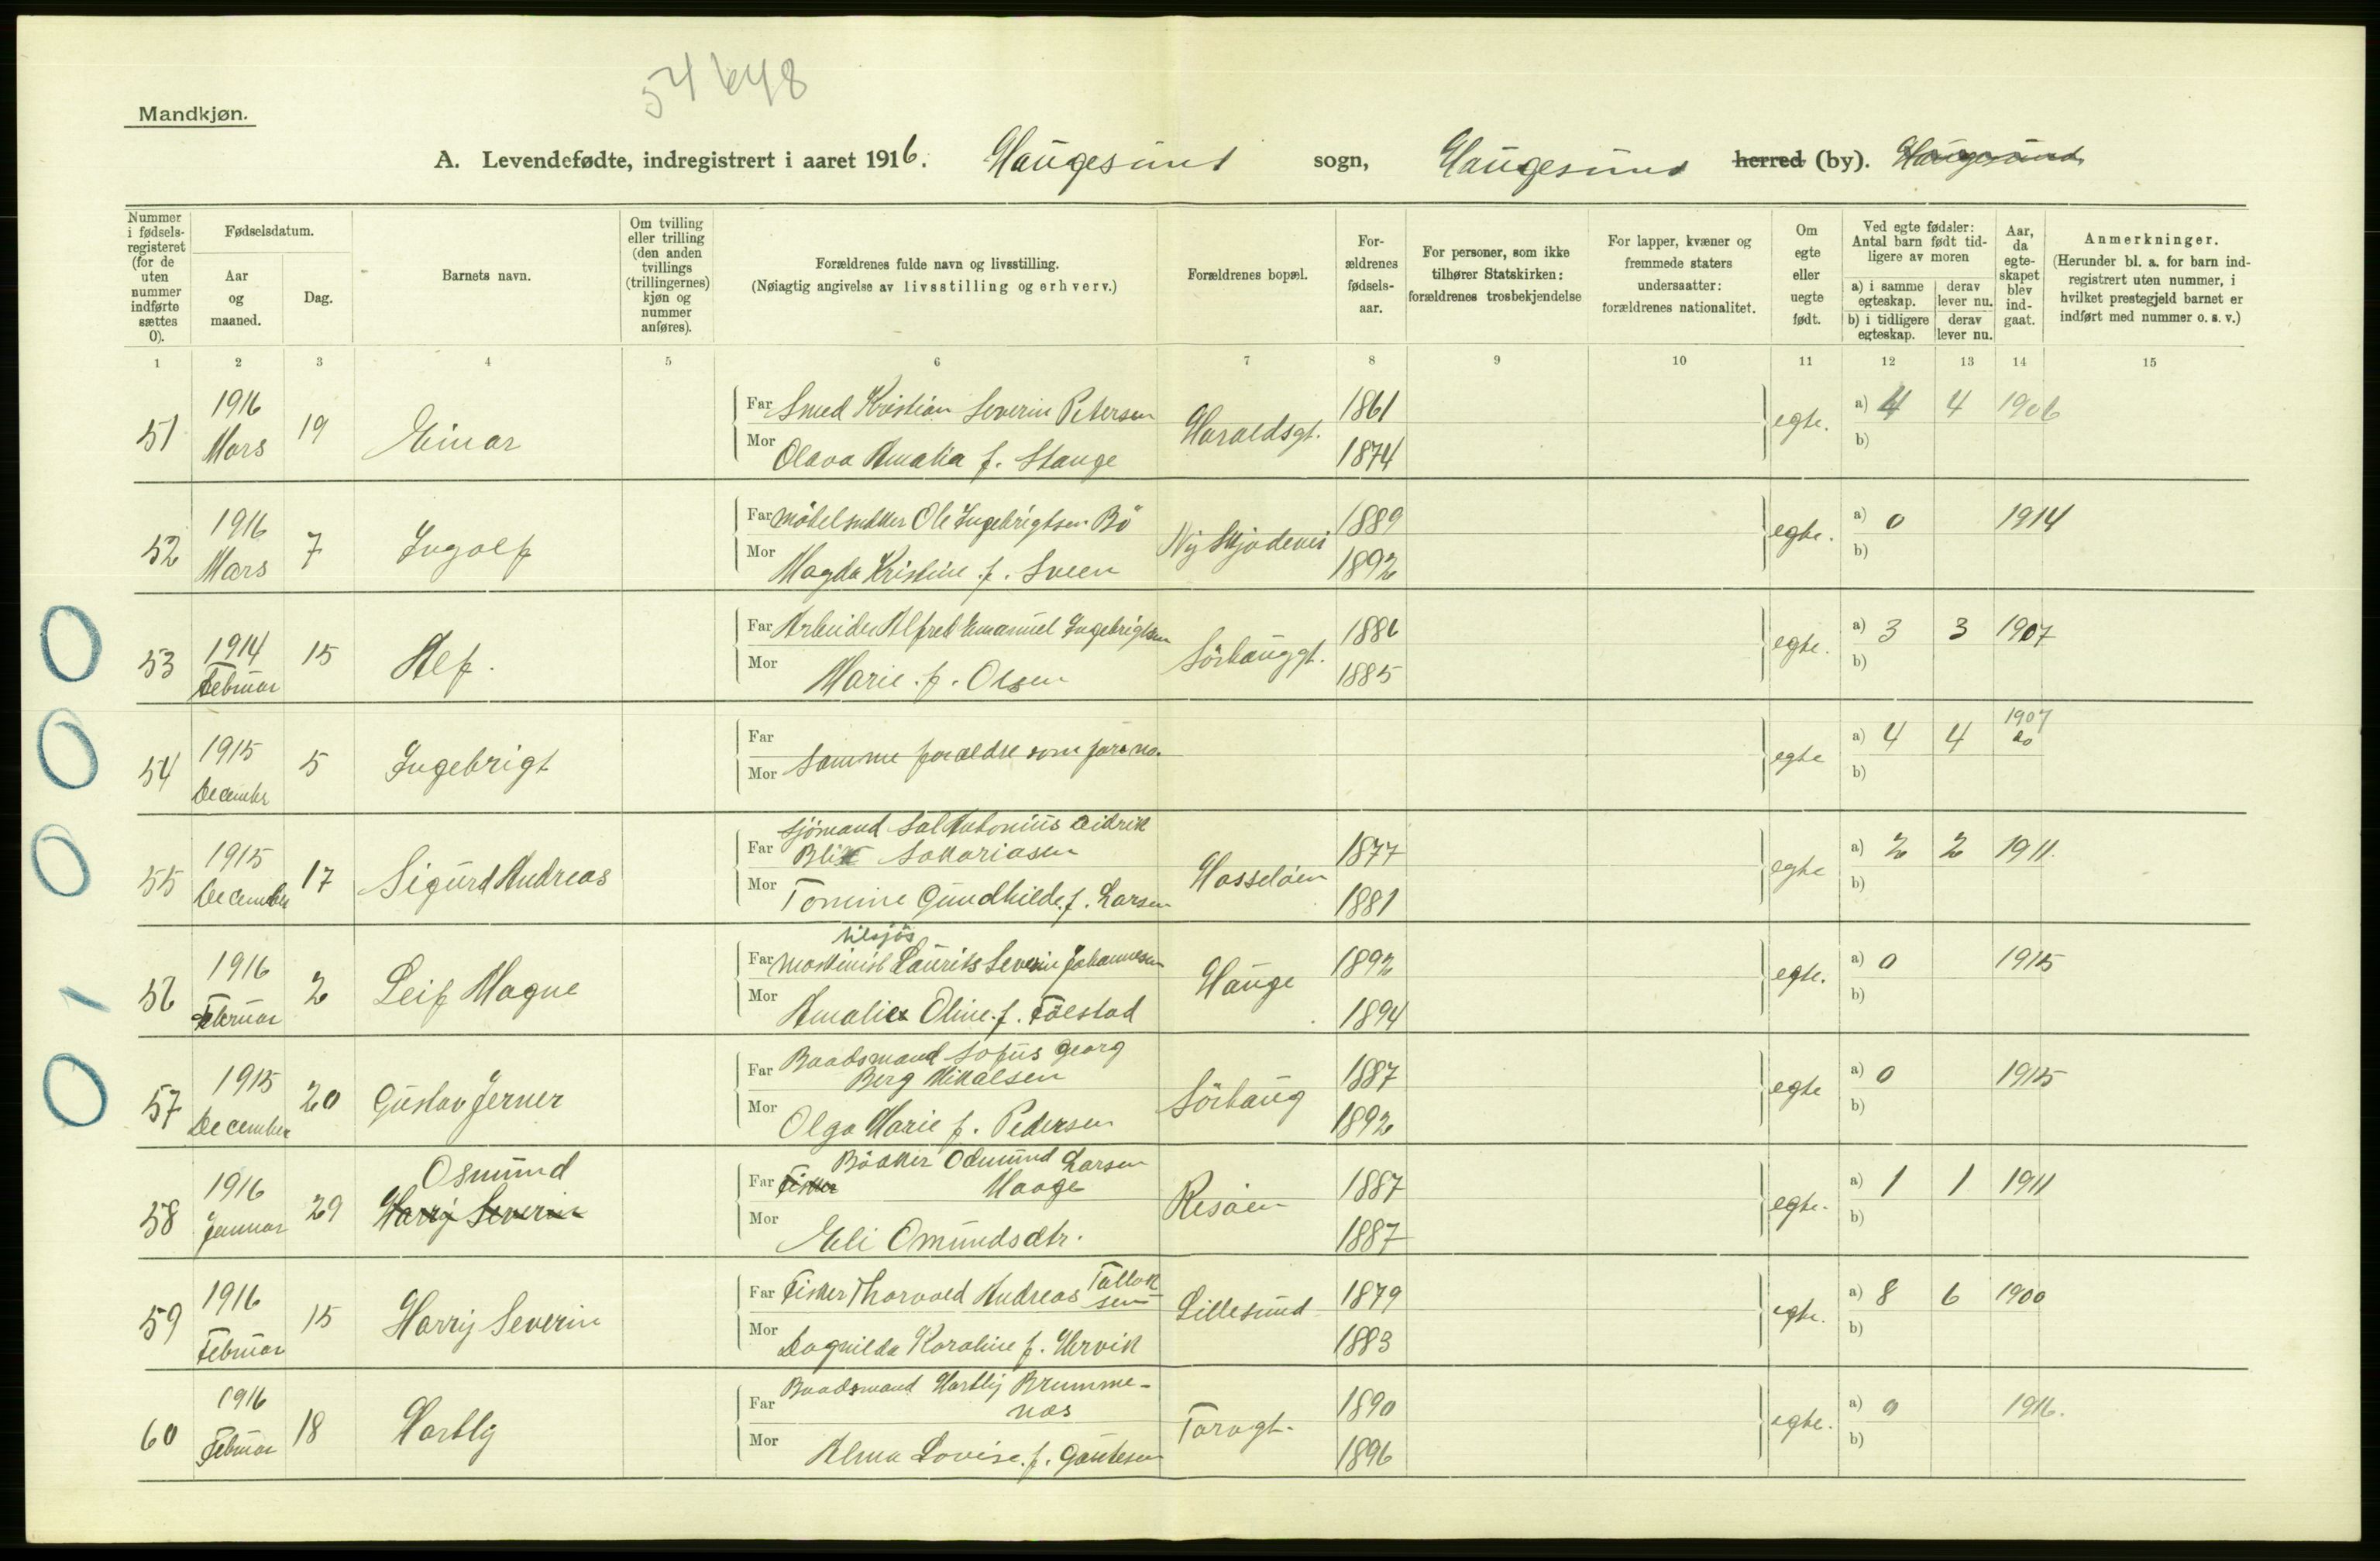 54648
Mandkjøn.
A. Levendefødte, indregistrert i aaret 1916. Haugesund sogn, Haugesund herred (by). Haugesund
Nummer i fødselsregisteret (for de uten nummer indførte sættes 0).
Fødselsdatum.
Aar og maaned.
Dag.
Barnets navn.
Om tvilling eller trilling (den anden tvillings (trillingernes) kjøn og nummer anføres).
Forældrenes fulde navn og livsstilling.
(Nøiagtig angivelse av livsstilling og erhverv.)
Forældrenes bopæl.
Forældrenes fødselsaar.
For personer, som ikke tilhører Statskirken: forældrenes trosbekjendelse
For lapper, kvæner og fremmede staters undersaatter: forældrenes nationalitet.
Om egte eller uegte født.
Ved egte fødsler: Antal barn født tidligere av moren
a) i samme egteskap. derav lever nu.
b) i tidligere egteskap. derav lever nu.
Aar, da egteskapet blev indgaat.
Anmerkninger.
(Herunder bl. a. for barn indregistrert uten nummer, i hvilket prestegjeld barnet er indført med nummer o. s. v.)
1 2 3 4 5 6 7 8 9 10 11 12 13 14 15
51 1916 Mars 19 Einar
Far Smed Kristian Severin Petersen Haraldsgt. 1861 egte. a) 4 4 1906
Mor Olava Amalia f. Stange 1874 b)
52 1916 Mars 7 Ingolf
Far Møbelsnekker Ole Ingebrigtsen Bö Ny Skjodevei 1889 egte. a) 0 1914
Mor Magda Kristine f. Sveen 1892 b)
0 53 1914 Februar 15 Alf.
Far Arbeider Alfred Emanuel Ingebrigtsen Sörhauggt. 1886 egte. a) 3 3 1907
Mor Marie f. Olsen 1885 b)
0 54 1915 December 5 Ingebrigt
Far Mor Samme forældre som forr. no. egte a) 4 4 1907 do b)
0 55 1915 December 17 Sigurd Andreas
Far Sjömand Sal Antonius Didrik Blix Sakariasen Hasseløen 1877 egte a) 2 2 1911.
Mor Tomine Gundhilde f. Larsen 1881 b)
1 56 1916 Februar 2 Leif Magne
Far Maskinist tilsjös Laurits Severin Johannesen Hauge 1892 egte. a) 0 1915
Mor Amalie Oline f. Följestad 1894 b)
0 57 1915 December 20 Gustav Jerner
Far Baadsmand Sofus Georg Berg Mikalsen Sörhaug 1887 egte a) 0 1915
Mor Olga Marie f. Pedersen 1892 b)
58 1916 Januar 29 Osmund Harry Severin
Far Fisker Bödker Odmund Larsen Haage Risöen 1887 egte. a) 1 1 1911
Mor Eli Omundsdtr. 1887 b)
59 1916 Februar 15 Harry Severin
Far Fisker Thorvald Andreas Tallaksen Lillesund 1879 egte. a) 8 6 1900
Mor Dagnilda Karoline f. Hervik 1883 b)
60 1916 Februar 18 Hartly
Far Baadsmand Hartly Brummenæs Torvgt. 1890 egte. a) 0 1916.
Mor Alma Lovise f. Gautesen 1896 b)